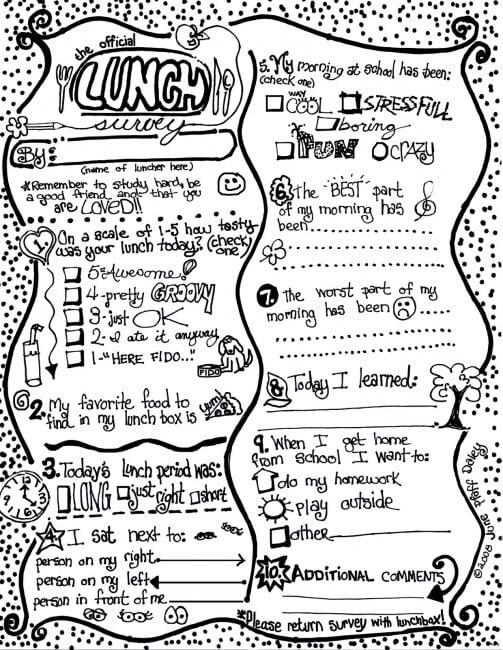 the official
LUNCH
survey
By:
(name of luncher here)
*Remember to study hard, be
a good friend and that you
are LOVED!!
1. On a scale of 1-5 how tasty
was your lunch today? (check
one)
5-Awesome!
4-pretty GROOVY
3-just OK
2-I ate it anyway
1-"HERE FIDO..."
FIDO
2. My favorite food to
find in my lunch box is
yum!
3. Today's lunch period was:
LONG just right short
4. I sat next to:
person on my right
person on my left
person in front of me
5. My morning at school has been:
(check one)
WAY
COOL STRESSFULL
boring
FUN CRAZY
6. The "BEST" part
of my morning has
been
7. The worst part of my
morning has been
8. Today I learned:
9. When I get home
from school I want to:
do my homework
play outside
other
10. ADDITIONAL COMMENTS
*Please return survey with lunchbox!
©2008 June Pfaff Daley
©2008